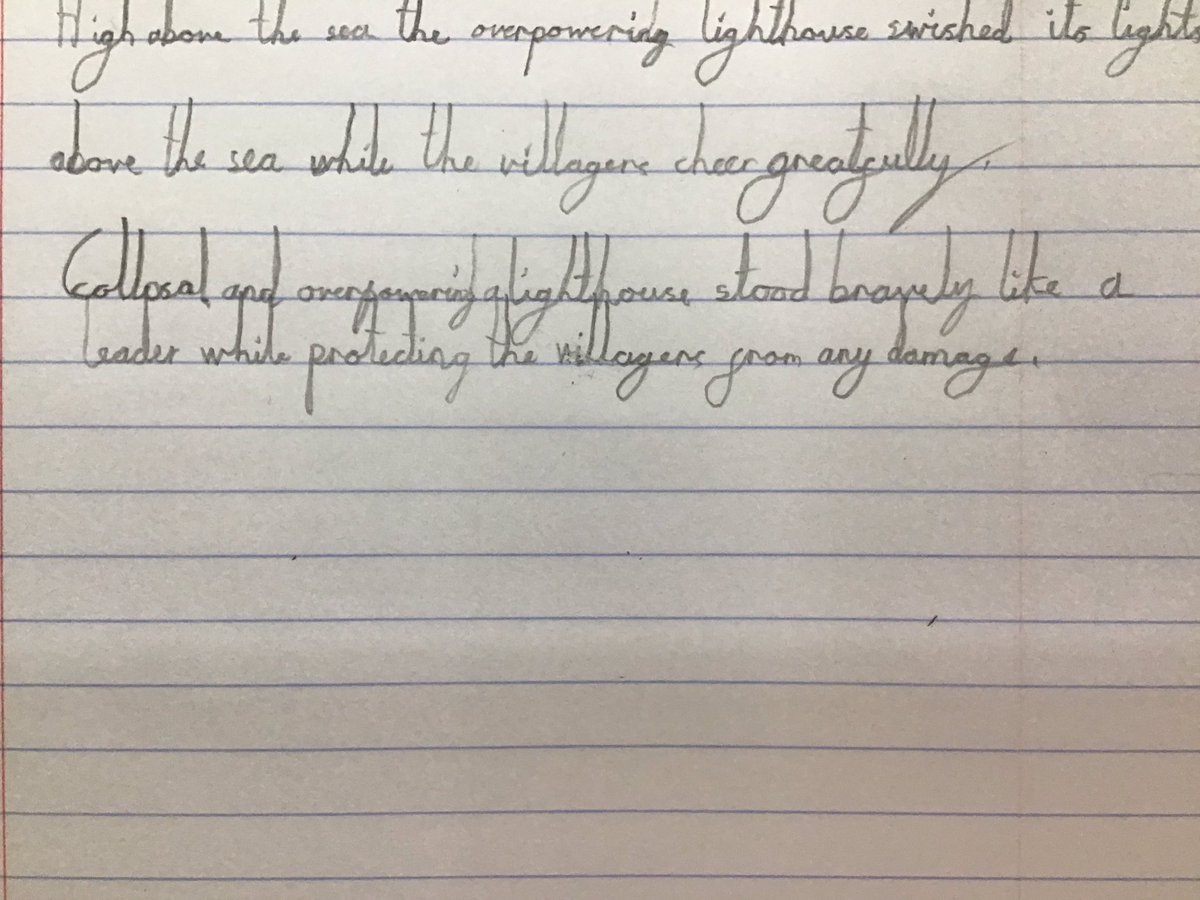 High above the sea the overpowering lighthouse swished its lights
above the sea while the villagers cheer greatfully.
Collpsal and overpowering lighthouse stood bravely like a
leader while protecting the villagers from any damage.